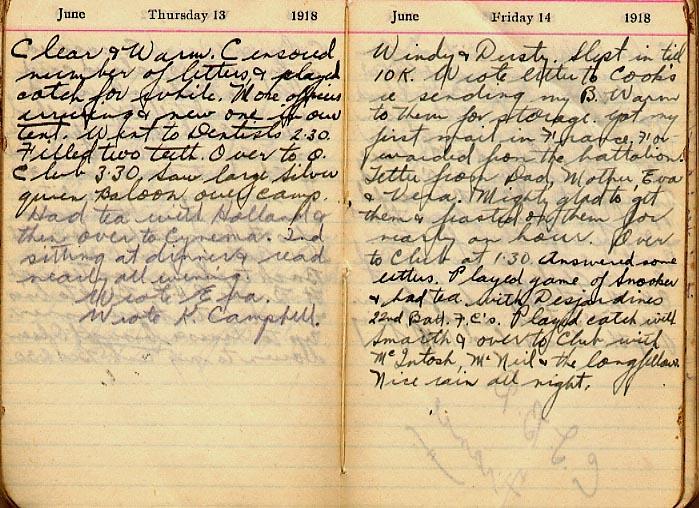 June Thursday 13 1918
Clear & Warm. Censored
number of letters, & played
catch for while. More officers
arriving & new one in our
tent. Went to Dentists 2.30.
Filled two teeth. Over to O.
Club 3.30, Saw large Silver
queer Baloon over camp.
Had tea with Holland &
then over to Cynema. 2nd
sitting at dinner & read
nearly all evening.
Wrote Eva.
Wrote K. Campbell.
June Friday 14 1918
Windy & Dusty. Slept in till
10 K. Wrote letter to Cooks
re sending my B. Warm
to them for storage. got my
first mail in France, For-
warded from the battalion.
Letter from Dad, Mother, Eva
& Vera. Mighty glad to get
them & feasted on them for
nearly an hour. Over
to Club at 1.30. Answered some
letters. Played game of Snooker
& had tea with Desjardines
22nd Batt. F.C's. Played catch with
Smarth & over to Club with
McIntosh, McNeil & the long fellow.
Nice rain all night.